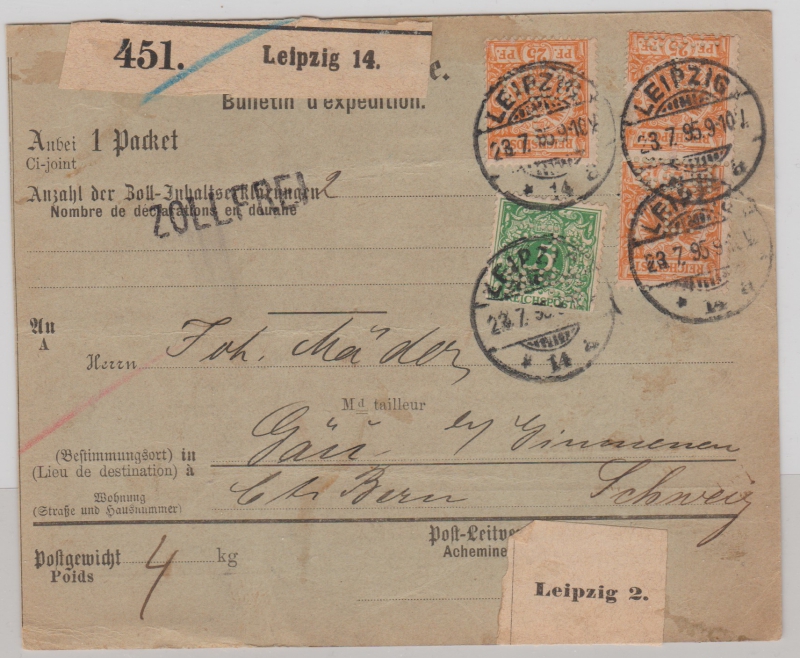 451. Leipzig 14.
e.
Bulletin d'expédition.
Anbei 1 Packet
Ci-joint
Anzahl der Zoll-Inhaltserklärungen 2
Nombre de déclarations en douane
ZOLLFREI
25 PF. 25
PF. 25
LEIPZIG
23.7.95.9-10V.
* 14 a
LEIPZIG
23.7.95.9-10V.
a
REICHSPOST
LEIPZIG
23.7.95.9
* 14 a
5
REICHSPOST
LEIPZIG
23.7.95
* 14 a
An
A
Herrn Joh. Mäder
Md tailleur
(Bestimmungsort) in
(Lieu de destination) à
Gäu by Gümmenen
Wohnung
(Straße und Hausnummer)
Ct. Bern Schweiz
Post-Leitve
Achemine
Postgewicht 4 kg
Poids
Leipzig 2.